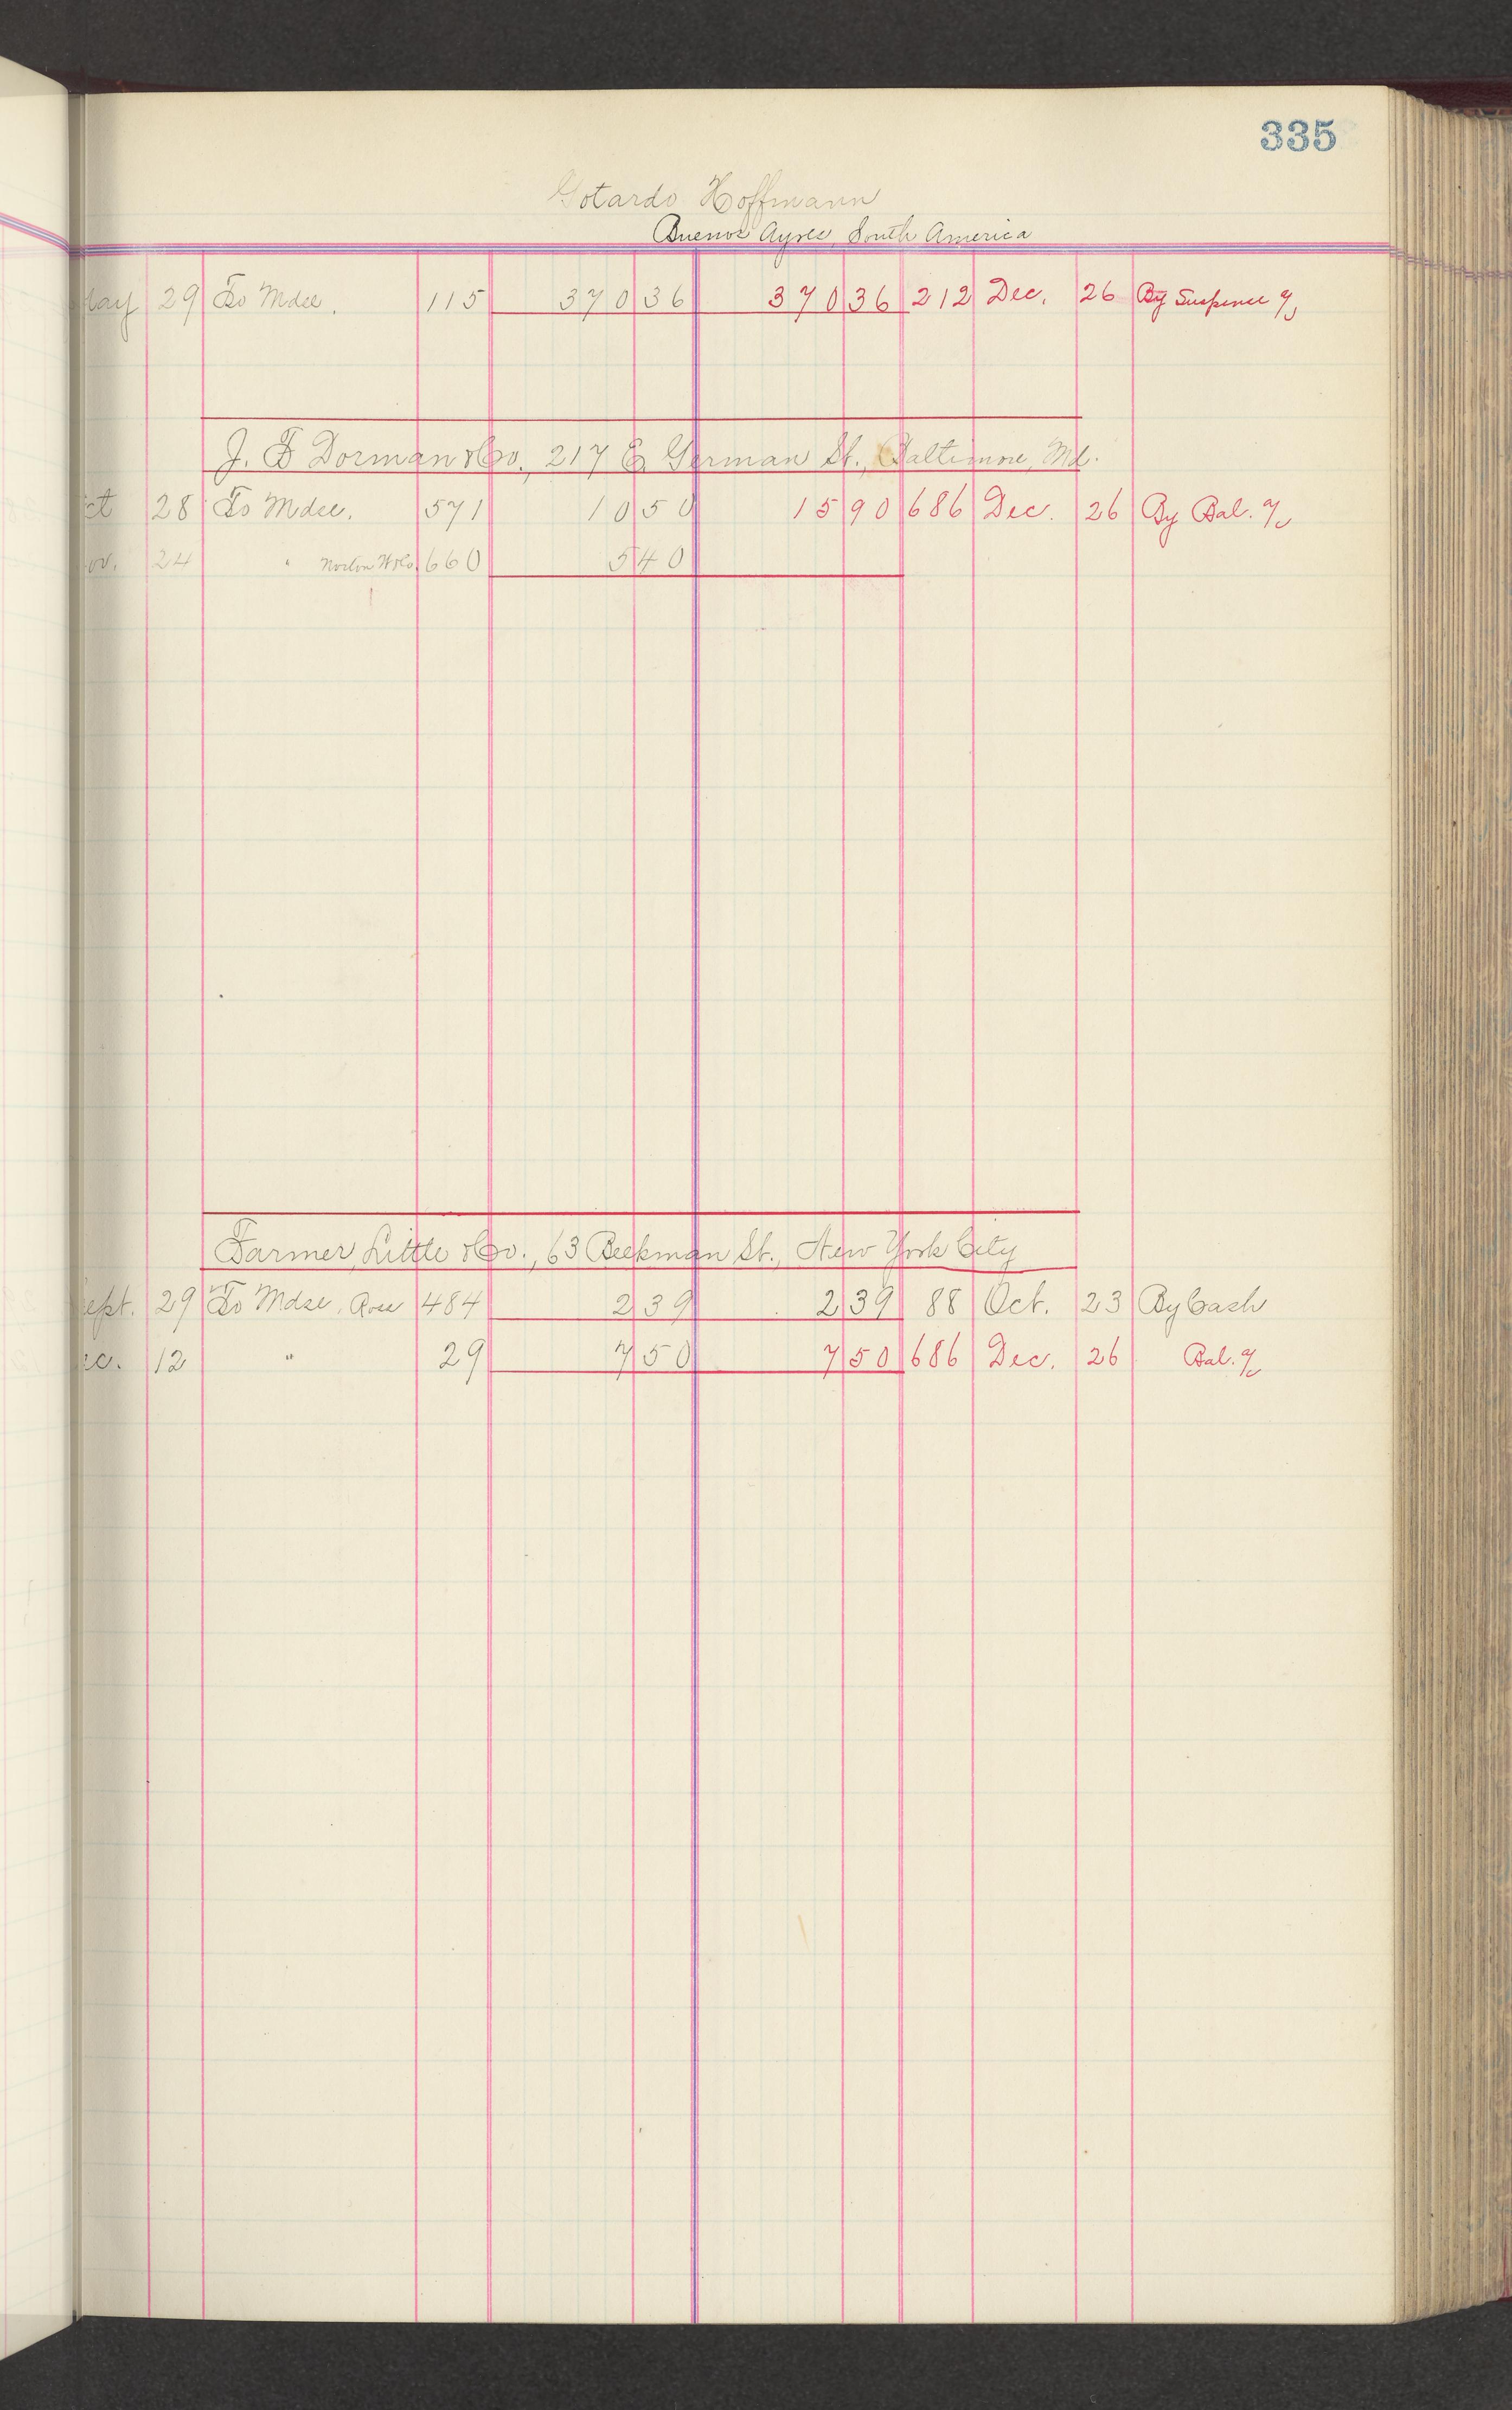 335
Gotardo Hoffmann
Buenos Ayres, South America
May 29 To Mdse. 115 370 36 370 36 212 Dec. 26 By Suspense a/c
J. F. Dorman & Co., 217 E. German St., Baltimore, Md.
ct 28 To Mdse. 571 10 50 15 90 686 Dec. 26 By Bal. a/c
ov. 24 " 660 5 40
Farmer, Little & Co., 63 Beekman St., New York City
ept. 29 To Mdse. 484 2 39 2 39 88 Oct. 23 By Cash
ec. 12 " 29 7 50 7 50 686 Dec. 26 Bal. a/c